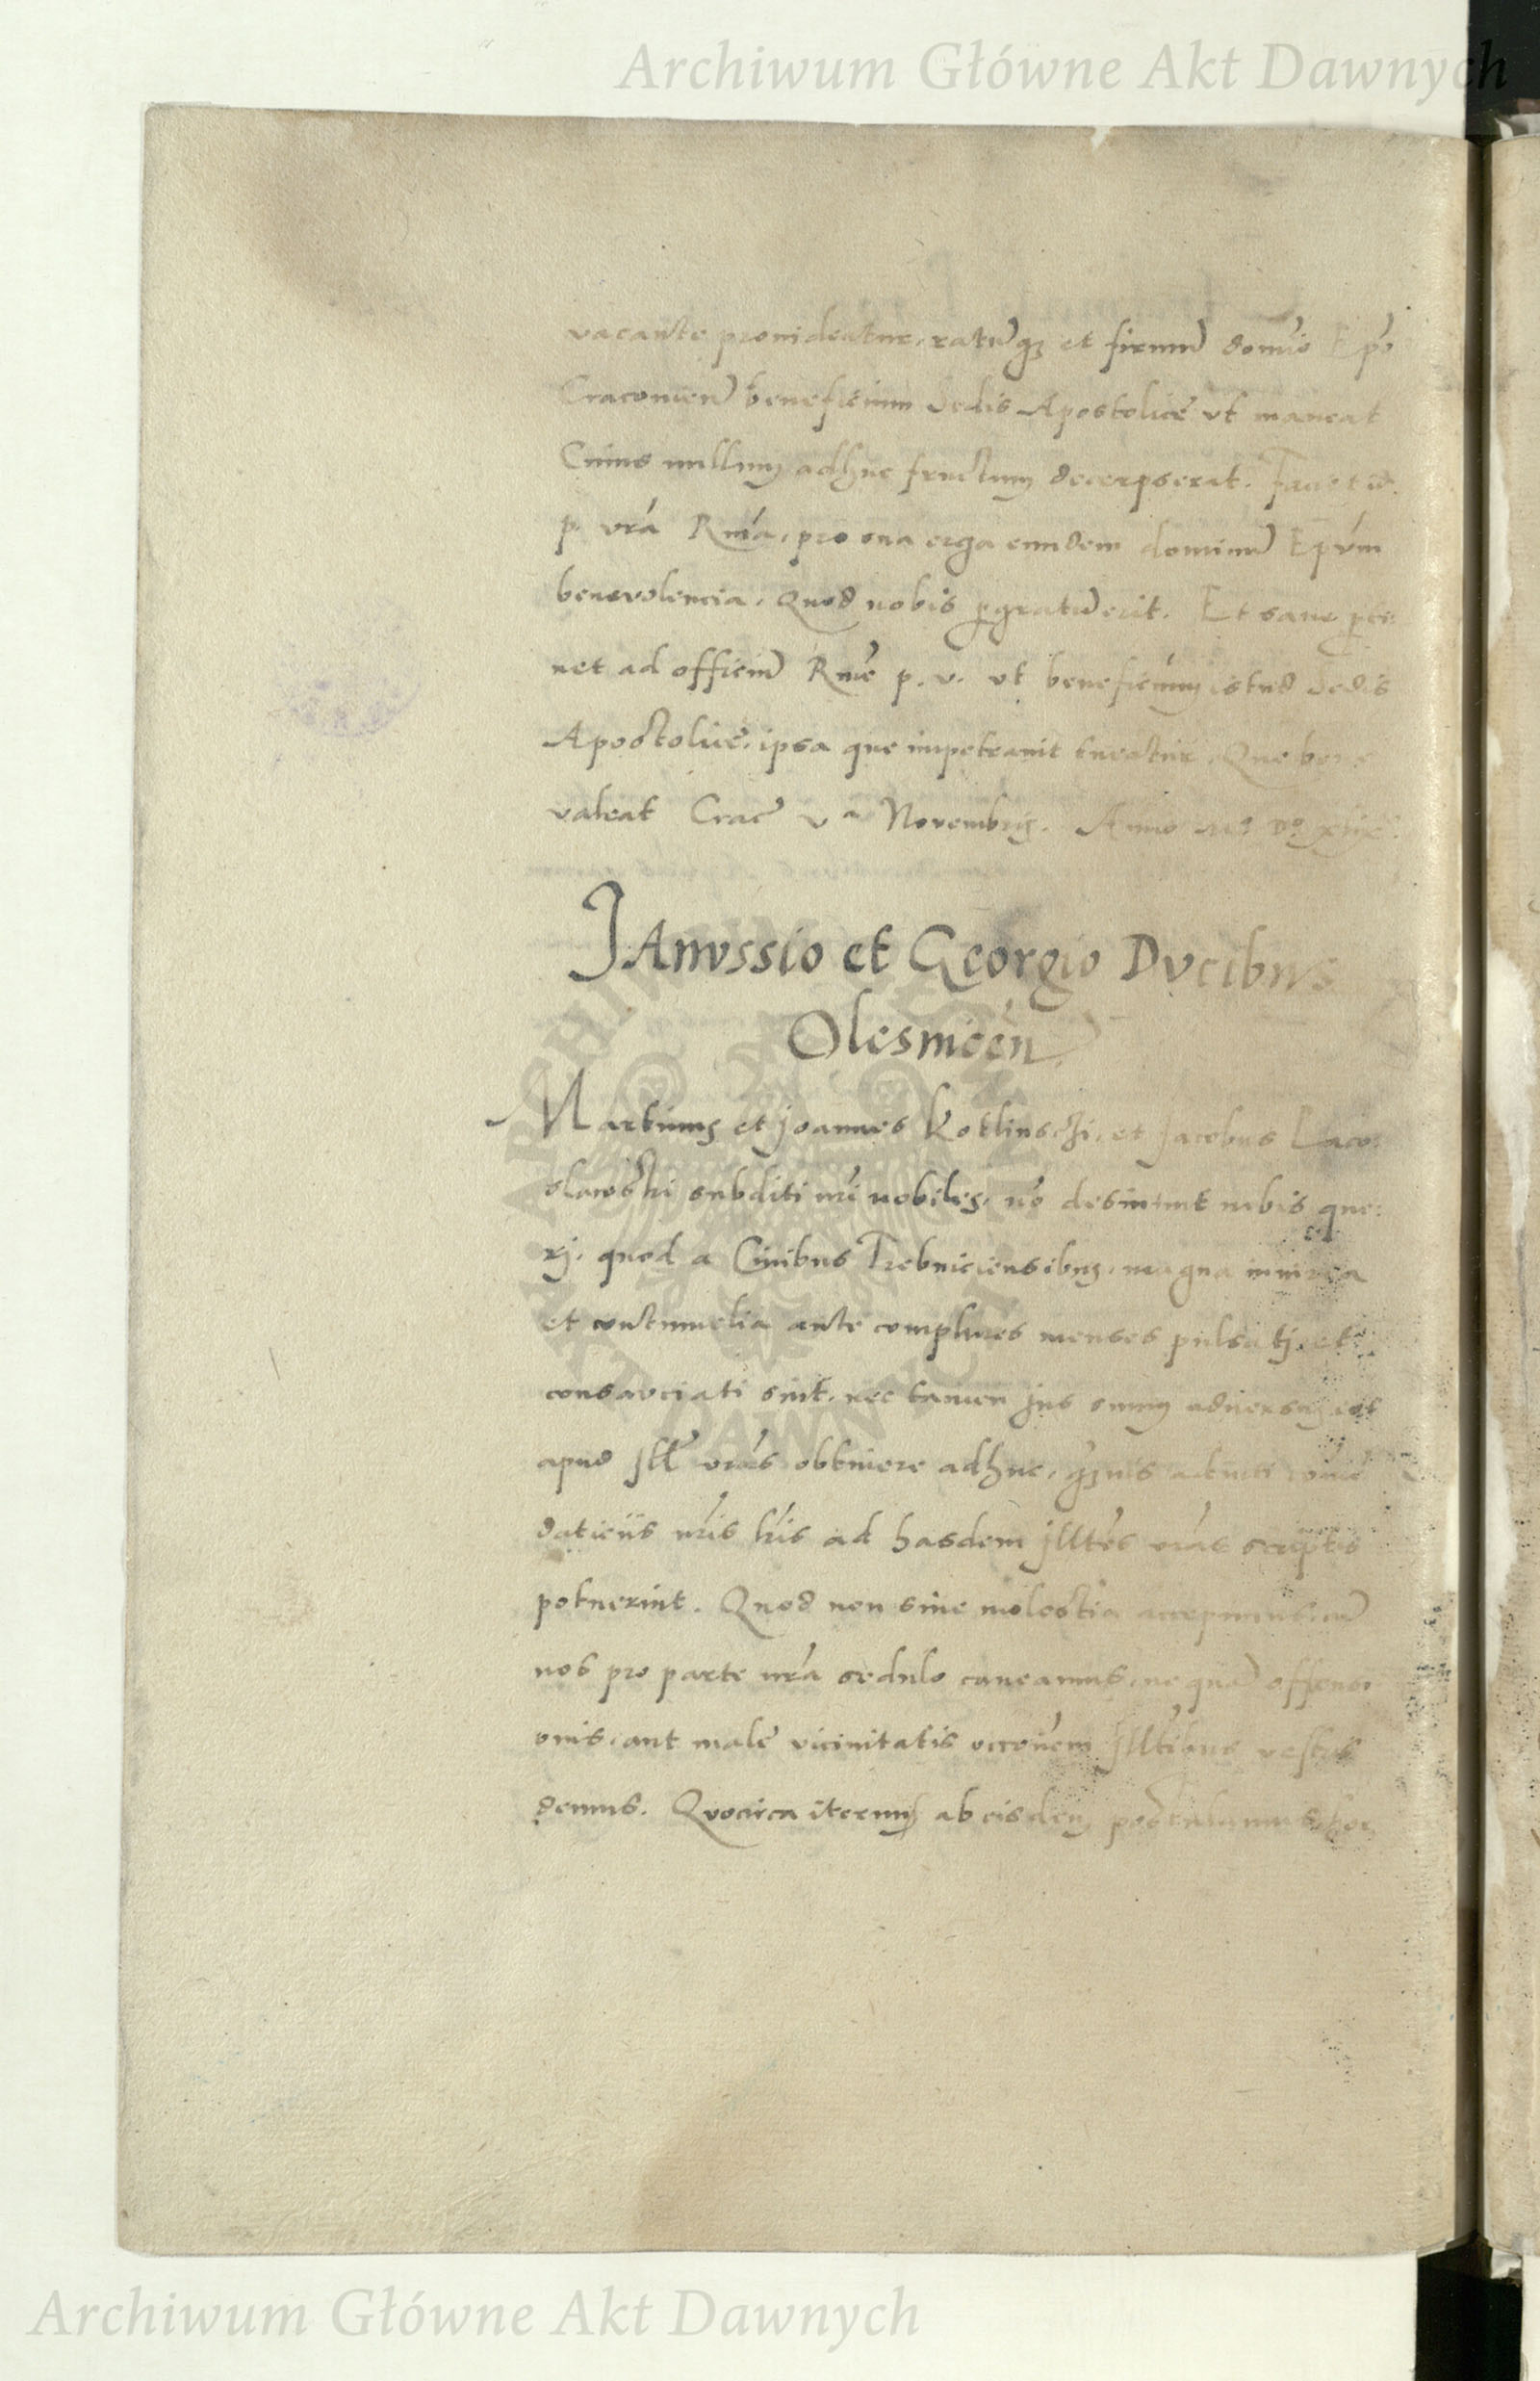 Archiwum Główne Akt Dawnych
vacante prouideatur, ratũq3 et firmũ domĩo Epõ
Cracouieñ beneficium Sedis Apostolice vt maneat
Cuius nullum adhuc fructum decerpserat. Fauet id
p. vrã Rmã, pro sua erga eundem dominũ Epũm
beneuolencia. Quod nobis pgratũ erit. Et sane perti:
net ad officiũ Rme p. v. vt beneficium istud Sedis
Apostolice, ipsa que impetrauit tueatur. Que bene
valeat Crac̃ va Novembris. Anno Mo Do xlix
JAnvssio et Georgio Dvcibvs
Olesniceñ
Martinus et Joannes Kotlinschi, et Jacobus
subditi nrĩ nobiles, nõ desinunt nobis que:
rj, quod a Ciuibus Trebniciensibus, magna iniuria
et contumelia ante complures menses pulsatj, et
consauciati sint, nec tamen jus suum aduersus eos
apud Jll̃ vrãs obtinere adhuc,
daticiis nrĩs lrĩs ad hasdem Jlltẽs vrãs scriptis
potuerint. Quod non sine molestia accepimus, cũ
nos pro parte nrã sedulo caueamus, ne quã offensi
onis, aut male vicinitatis occõnem Jlltĩbus vestris
demus. Quocirca iterum ab eisdem postulamus,
Archiwum Główne Akt Dawnych